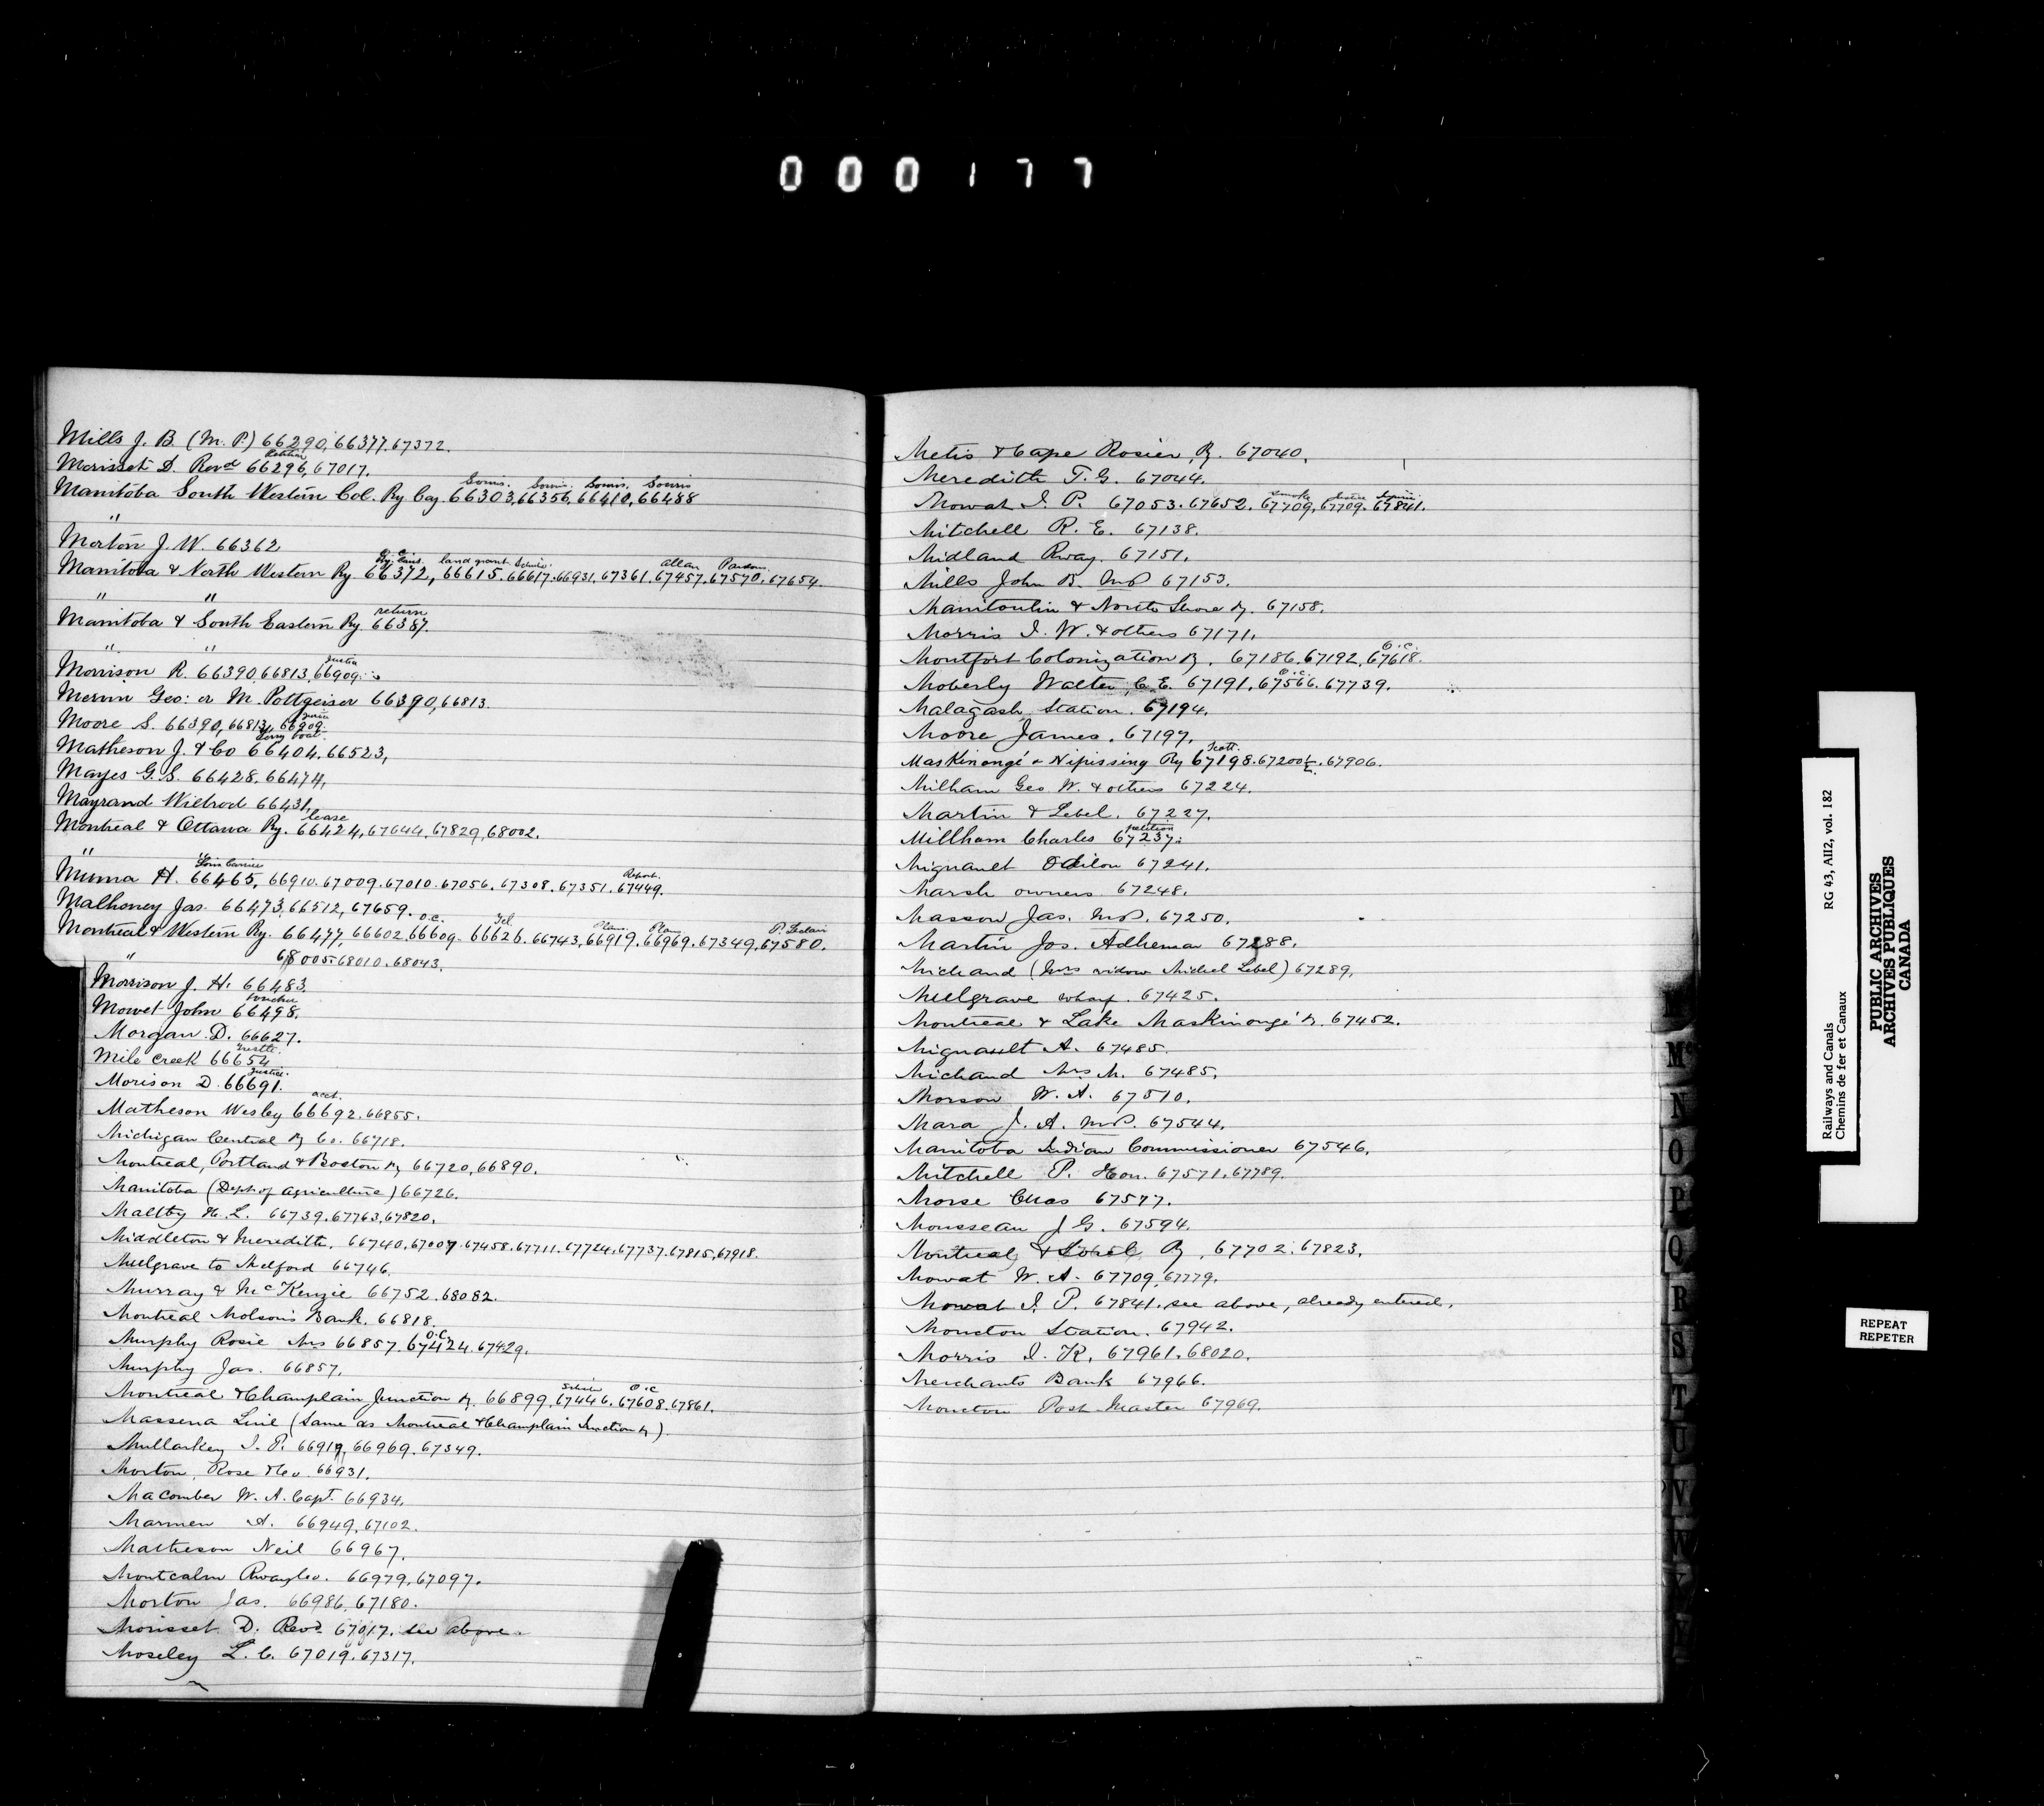 000177
Mills J. B. (M. P.) 66290, 66377. 67372.
Morisset D. Revd 66296, 67017.
Souris. Souris. Souris. Souris
Manitoba South Western Col. Ry Coy. 66303, 66356, 66410, 66488
"
Morton J. W. 66362
land grant. Allan
Manitoba & North Western Ry 66372, 66615. 66617. 66931, 67361. 67457. 67570. 67654.
" "
return
Manitoba & South Eastern Ry. 66387.
" "
Justice
Morrison R. 66390, 66813, 66909.
Mervin Geo: or M. Pottgeiser 66390, 66813.
Justice
Moore S. 66390, 66813, 66909.
Ferry boat.
Matheson J. & Co 66404. 66523,
Mayes G. S. 66428. 66474,
Mayrand Wilbrod 66431,
lease
Montreal & Ottawa Ry. 66424, 67644, 67829, 68002.
"
Report.
Mumma H. 66465, 66910. 67009. 67010. 67056. 67308. 67351. 67449.
Malhoney Jas. 66473, 66512, 67659.
O.C. Tel. Plan. Plan. P. Leclair
Montreal & Western Ry. 66477, 66602, 66609. 66626. 66743, 66919. 66969. 67349, 67580.
" 68005. 68010. 68043.
Morrison J. H. 66483.
voucher
Mowet John 66498.
Morgan D. 66627.
trestle.
Mile Creek 66654
Justice.
Morison D. 66691.
acct.
Matheson Wesley 66692. 66855.
Michigan Central Ry Co. 66718.
Montreal, Portland & Boston Ry 66720, 66890.
Manitoba (Dept of Agriculture) 66726.
Maltby H. L. 66739. 67763, 67820.
Middleton & Meredith. 66740, 67007. 67458. 67711. 67724. 67737. 67815, 67918.
Mulgrave to Melford 66746.
Murray & McKenzie 66752. 68082.
Montreal Molson's Bank. 66818.
O.C.
Murphy Rosie Mrs 66857. 67424. 67429.
Murphy Jas. 66857.
O.C
Montreal & Champlain Junction Ry. 66899. 67446. 67608. 67861.
Massena Line (Same as Montreal & Champlain Junction Ry).
Mullarkey J. P. 66919, 66969. 67349.
Morton, Rose & Co. 66931.
Macomber W. A. Capt. 66934.
Marmen A. 66949, 67102.
Matheson Neil 66967.
Montcalm Rway Co. 66979, 67097.
Morton Jas. 66986, 67180.
Morisset D. Revd. 67017. see above.
Moseley L. C. 67019. 67317.
Metis & Cape Rosier Ry. 67040.
Meredith T. G. 67044.
Smoke
Mowat I. P. 67053. 67652. 67709, 67709. 67841.
Mitchell R. E. 67138.
Midland Rway. 67151.
Mills John B. MP 67153.
Manitoulin & North Shore Ry. 67158.
Morris I. W. & others 67171.
O.C.
Montfort Colonization Ry. 67186. 67192, 67618.
O.C.
Moberly Walter C. E. 67191. 67566. 67739.
Malagash Station. 67194.
Moore James. 67197.
Scott.
Maskinongé & Nipissing Ry 67198. 67200½. 67906.
Milham Geo W. & others 67224.
Martin & Lebel. 67227.
petition
Millham Charles 67237.
Mignault Odilon 67241.
Marsh owners 67248.
Masson Jas. MP. 67250.
Martin Jos. Adhemar 67288.
Michaud (Mrs widow Michel Lebel) 67289.
Mulgrave wharf. 67425.
Montreal & Lake Maskinongé Ry. 67452.
Mignault A. 67485.
Michaud Mrs M. 67485.
Morson W. A. 67510.
Mara J. A. MP. 67544.
Manitoba Indian Commissioner 67546.
Mitchell P. Hon. 67571. 67789.
Morse Chas 67577.
Mousseau J G. 67594.
Montreal & Sorel Ry. 67702. 67823.
Mowat W. A. 67709, 67779.
Mowat I. P. 67841. see above, already entered.
Moncton Station. 67942.
Morris I. K. 67961. 68020.
Merchants Bank 67966.
Moncton Post Master 67969.
Mc
N
O
P
Q
R
S
T
U
V
W
Railways and Canals
Chemins de fer et Canaux
RG 43, AII2, vol. 182
PUBLIC ARCHIVES
ARCHIVES PUBLIQUES
CANADA
REPEAT
REPETER